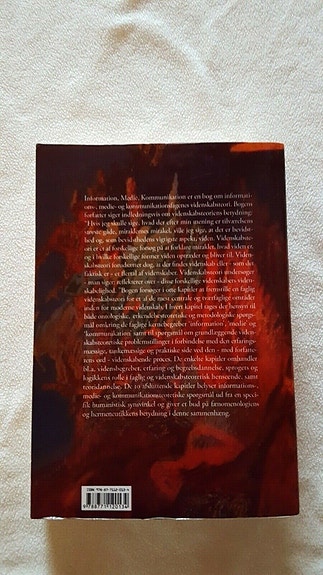 Information, Medie, Kommunikation er en bog om informati-
ons-, medie- og kommunikationsfagenes videnskabsteori. Bogens
forfatter siger indledningsvis om videnskabsteoriens betydning:
"Hvis jeg skulle sige, hvad der efter min mening er tilværelsens
største gåde, miraklernes mirakel, ville jeg sige, at det er bevidst-
hed og, som bevidsthedens vigtigste aspekt, viden. Videnskabste-
ori er et af forskellige forsøg på at forklare miraklet, hvad viden er
og i hvilke forskellige former viden optræder og bliver til. Viden-
skabsteori forudsætter dog, at der findes videnskab eller - som det
faktisk er - et flertal af videnskaber. Videnskabsteori undersøger
- man siger: reflekterer over - disse forskellige videnskabers viden-
skabelighed." Bogen forsøger i otte kapitler at formulere en faglig
videnskabsteori for et af de mest centrale og tværfaglige områder
inden for moderne videnskab. I hvert kapitel tages der hensyn til
både ontologiske, erkendelsesteoretiske og metodologiske spørgs-
mål omkring de faglige kernebegreber 'information', 'medie' og
'kommunikation' samt til spørgsmål om grundlæggende viden-
skabsteoretiske problemstillinger i forbindelse med den erfarings-
mæssige, tankemæssige og praktiske side ved den - med forfatte-
rens ord - videnskabende proces. De enkelte kapitler omhandler
bl.a. vidensbegrebet, erfaring og begrebsdannelse, sprogets og
logikkens rolle i faglig og videnskabsteoretisk henseende, samt
teoridannelse. De to afsluttende kapitler belyser informations-,
medie- og kommunikationsteoretiske spørgsmål ud fra en speci-
fik humanistisk synsvinkel og giver et bud på fænomenologiens
og hermeneutikkens betydning i denne sammenhæng.
ISBN 978-87-7112-013-4
9788771120134